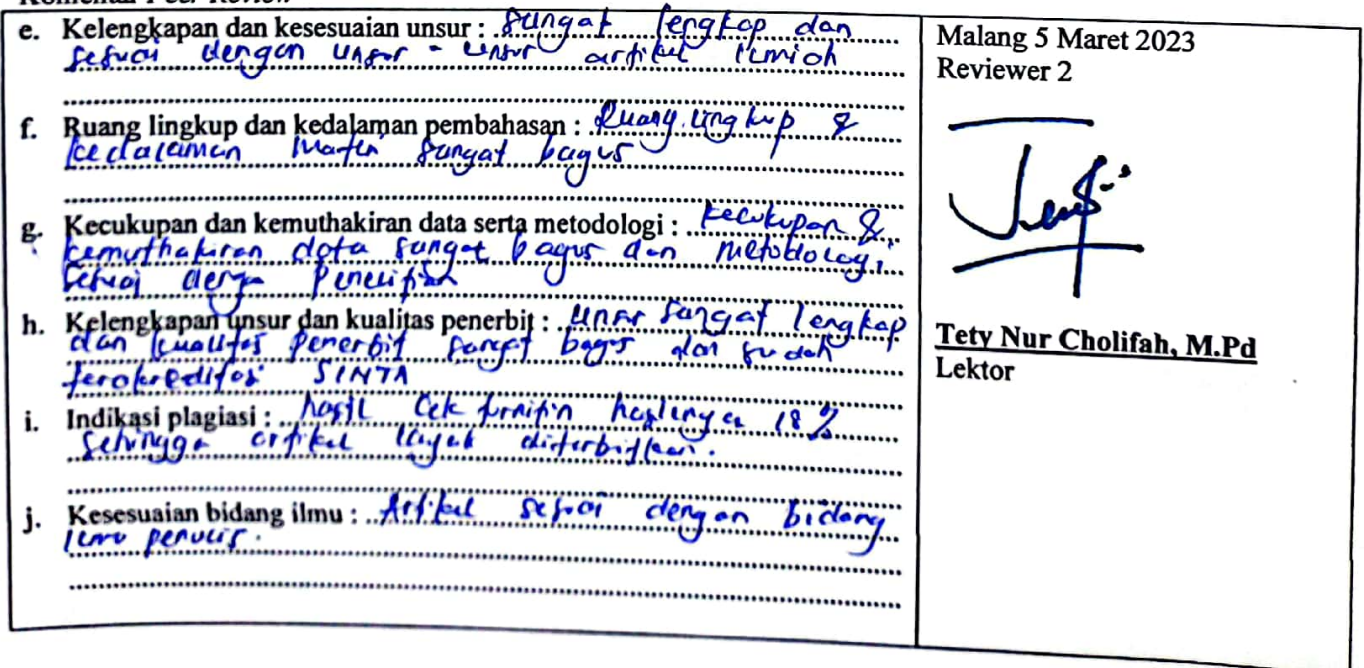 Komentar Peer Review
e. Kelengkapan dan kesesuaian unsur : Sangat lengkap dan
sesuai dengan unsur - unsur artikel ilmiah
f. Ruang lingkup dan kedalaman pembahasan : Ruang lingkup &
kedalaman Materi sangat bagus
g. Kecukupan dan kemuthakiran data serta metodologi : kecukupan &
kemuthakiran data sangat bagus dan metodologi
sesuai dengan penelitian
h. Kelengkapan unsur dan kualitas penerbit : unsur sangat lengkap
dan kualitas penerbit sangat bagus dan sudah
terakreditasi SINTA
i. Indikasi plagiasi : hasil cek turnitin hasilnya 18%
sehingga artikel layak diterbitkan.
j. Kesesuaian bidang ilmu : Artikel sesuai dengan bidang
ilmu penulis.
Malang 5 Maret 2023
Reviewer 2
Tety Nur Cholifah, M.Pd
Lektor